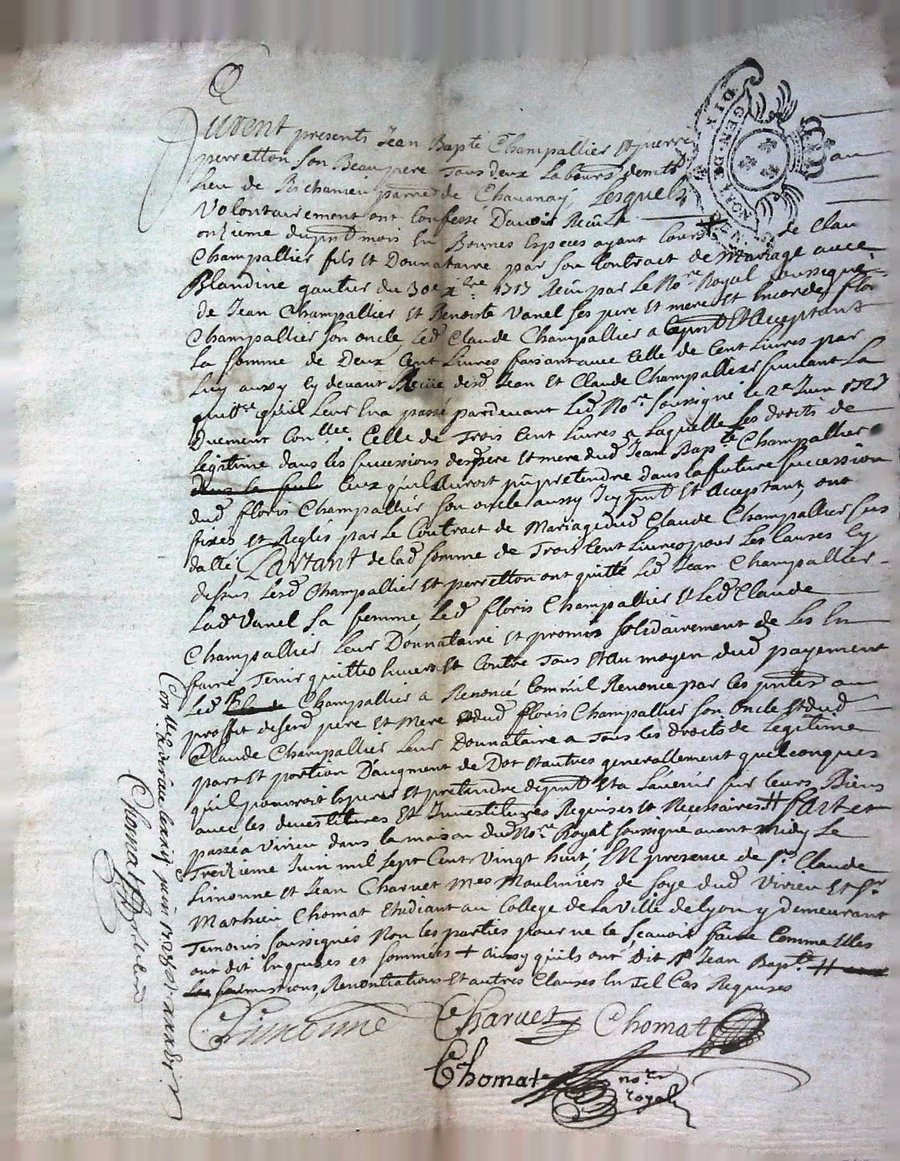 Q
Furent presents Jean Bapte Champallier & pierre
perretton son Beaupere tous deux Labours demts
Lieu de parroisse de Chavanay, Lesquels
Volontairement ont Confessé D'avoir Reçû
onzieme du pnt mois En Bonnes Especes ayant Cours de Clau
Champallier fils Et Donnataire par son Contract de Mariage avec
Blandine gautier du 30e xbre 1717 Reçu par Le Nore Royal soussigné
de Jean Champallier Et Benoite Vanel ses pere Et mere Et Encore de flo
Champallier son oncle Led Claude Champallier a Ce pnt & Acceptant
La somme de Deux Cent Livres faisant avec Celle de Cent Livres par
Luy auxy Cy devant Reçüe desd Jean Et Claude Champallier suivant La
quitce qu'il Leur En a passé pardevant Led Nore soussigné le 2e Juin 1727
Duement Conllée. Celle de Trois Cent Livres a Laquelle Les droits de
Legitime dans les successions desd pere Et mere dud Jean Bapte Champallier
Ceux qu'il auroit pû pretendre dans La future succession
dud floris Champallier son oncle aussy Icy pnt Et Acceptant, ont
fixés Et Reglés par Le Contract de Mariage dud Claude Champallier sus
datté Partant de lad somme de Trois Cent Livres pour Les Causes Cy
dessus Lesd Champallier Et perretton ont quitté Led Jean Champallier
Lad Vanel sa femme Led floris Champallier Et Led Claude
Champallier Leur Donnataire Et promis solidairement de Les En
faire Tenir quittes Envers Et Contre Tous Et Au moyen dud payement
Led Champallier a Renoncé Comme il Renonce par Ces pntes au
proffit desd pere Et Mere dud floris Champallier son Oncle Et dud
Claude Champallier Leur Donnataire a Tous Les droits de Legitime
part Et portion D'augment de Dot Et autres generallement quelconques
qu'il pourroit Esperer Et pretendre a L'avenir sur Leurs Biens
avec les devestitures Et Investitures Requises Et Necessaires # fait et
passé a Virieu dans la maison dud Nore Royal soussigné avant Midy Le
Treizieme Juin mil sept Cent Vingt huit, En presence de sr Claude
Limonne Et Jean Charvet Mes Mouliniers de soye dud Virieu Et sr
Mathieu Chomat Etudiant au College de La Ville de Lyon y demeurant
Temoins soussignés Non les parties pour ne le sçavoir faire Comme Elles
ont dit Enquises et sommées + aussy qu'ils ont Dit sr Jean Bapte #
submissions, Renontiations Et autres Clauses En Tel Cas Requises
Limonne
Charvet
Chomat
Chomat nore royal
juin 1728
Chomat
DIX
GEN DE
LYON